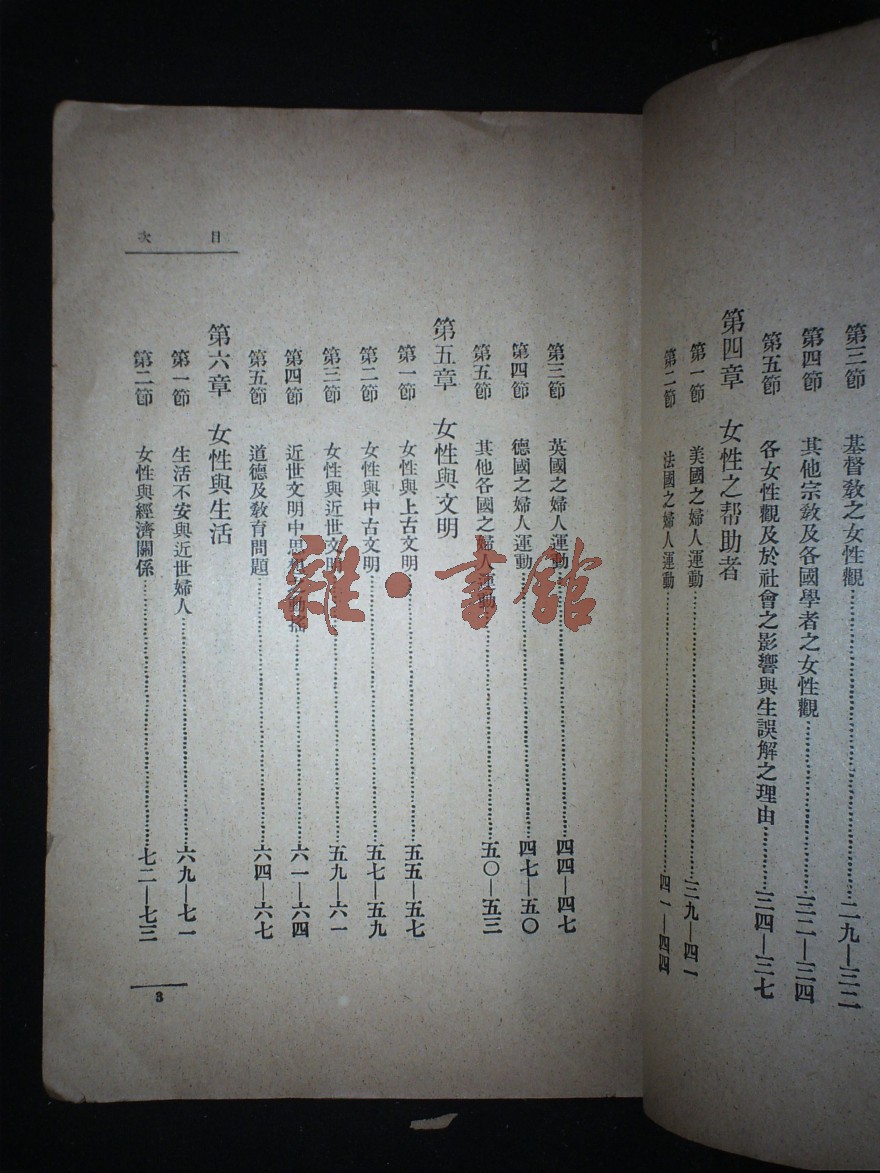 第三節　基督教之女性觀…………二九—三二
第四節　其他宗教及各國學者之女性觀…………三二—三四
第五節　各女性觀及於社會之影響與生誤解之理由…………三四—三七
第四章　女性之帮助者
第一節　美國之婦人運動…………三九—四一
第二節　法國之婦人運動…………四一—四四
目次
第三節　英國之婦人運動…………四四—四七
第四節　德國之婦人運動…………四七—五〇
第五節　其他各國之婦人運動…………五〇—五三
第五章　女性與文明
第一節　女性與上古文明…………五五—五七
第二節　女性與中古文明…………五七—五九
第三節　女性與近世文明…………五九—六一
第四節　近世文明中思想之動搖…………六一—六四
第五節　道德及教育問題…………六四—六七
第六章　女性與生活
第一節　生活不安與近世婦人…………六九—七一
第二節　女性與經濟關係…………七二—七三
3
雜·書館